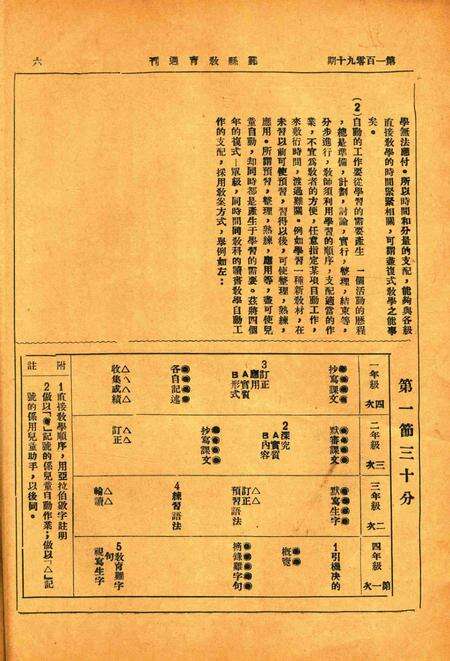 期十九零百一第
刊週育教縣範
六
學無法應付。所以時間和分量的支配，能夠與各級
直接教學的時間緊緊相關，可謂盡複式教學之能事
矣。
（2）自動的工作要從學習的需要產生　一個活動的歷程
，總是準備，計劃，討論，實行，整理，結束等，
分步進行，教師須利用學習的順序，支配適當的作
業，不宜為教者的方便，任意指定某項自動工作，
來敷衍時間，渡過難關。例如學習一種新教材，在
未習以前可使預習，習得以後，可使整理，熟練，
應用。所謂預習，整理，熟練，應用等，盡可使兒
童自動，却同時都是產生于學習的需要。茲將四個
年的複式—單級，同時間同教科的讀書教學自動工
作的支配，採用教案方式，舉例如左：
第一節三十分
一年級
四次
●●●●抄寫課文
3訂正
應用
A實質
B形式
●●●●各自記述
△△△△收集成績
二年級
三次
●●●●默書課文
2深究
A實質
B內容
●●●●抄寫課文
△△訂正
三年級
二次
●●●●默寫生字
訂正△△
預習語法
4練習語法
△△輪讀
四年級
第一次
1引機決的
●●概覽
●●●●摘錄難字句
5教育難字句
視寫生字
附註
1直接教學順序，用亞拉伯數字註明
2做以「●」記號的係兒童自動作業；做以「△」記
號的係用兒童助手，以後同。